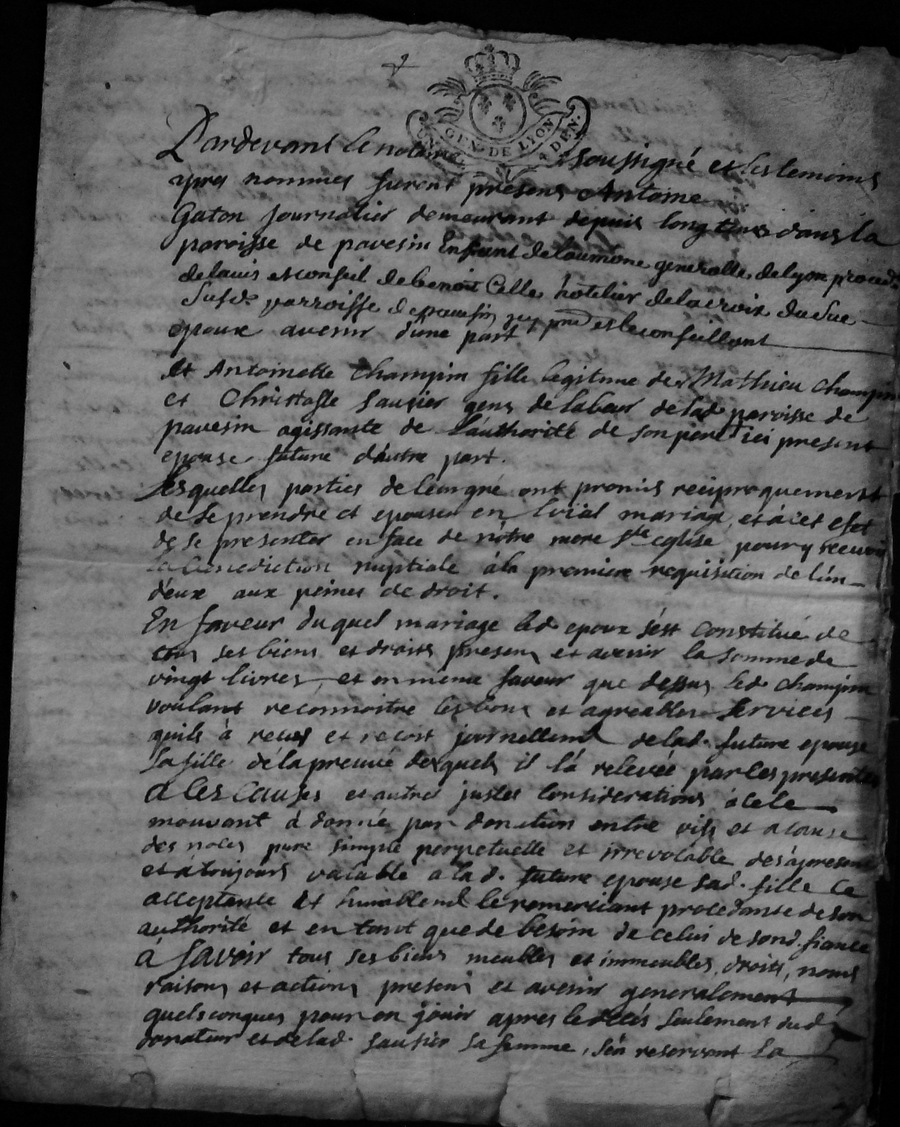 GEN. DE LYON
4 DEN.
Pardevant le notaire soussigné et les temoins
apres nommes furent presens Antoine
Gaton journalier demeurant depuis longtems dans la
paroisse de pavesin Enfant de laumone generalle de lyon procedt
de lavis et conseil de benoit Celle hotelier de la croix du
parroisse de pavesin et le conseillant
epoux avenir d'une part
Et Antoinette Champin fille legitime de Mathieu Champin
et Christofle Sausier gens de labeur de lad. paroisse de
pavesin agissante de l'authorité de son pere ici present
epouse future d'autre part.
Lesquelles parties de leur gré ont promis reciproquement
de se prendre et epouser en loial mariage, et à cet efet
de se presenter en face de nôtre mere ste eglise pour y recevoir
la benediction nuptiale à la premiere requisition de l'un
deux aux peines de droit.
En faveur duquel mariage led. epoux s'est constitué de
tous ses biens et droits presens et avenir la somme de
vingt livres, et en meme faveur que dessus led. champin
voulant reconnoitre les bons et agreables services
quils à reçus et recoit journellemt de lad. future epouse
sa fille de la preuve desquels il l'à relevée par ces presentes
à ces causes et autres justes considerations à ce le
mouvant à donné par donation entre vifs et a cause
des noces pure simple perpetuelle et irrevocable des à present
et à toujours valable à lad. future epouse sad. fille ce
acceptante et humblemt le remerciant procedante de son
authorité et en tant que de besoin de celui de sond. fiancé
à Savoir tous ses biens meubles et immeubles, droits, noms
raisons et actions presens et avenir generalement
quelsconques pour en jouir apres le deces seulement dud.
donateur et de lad. sausier sa femme, s'en reservant la